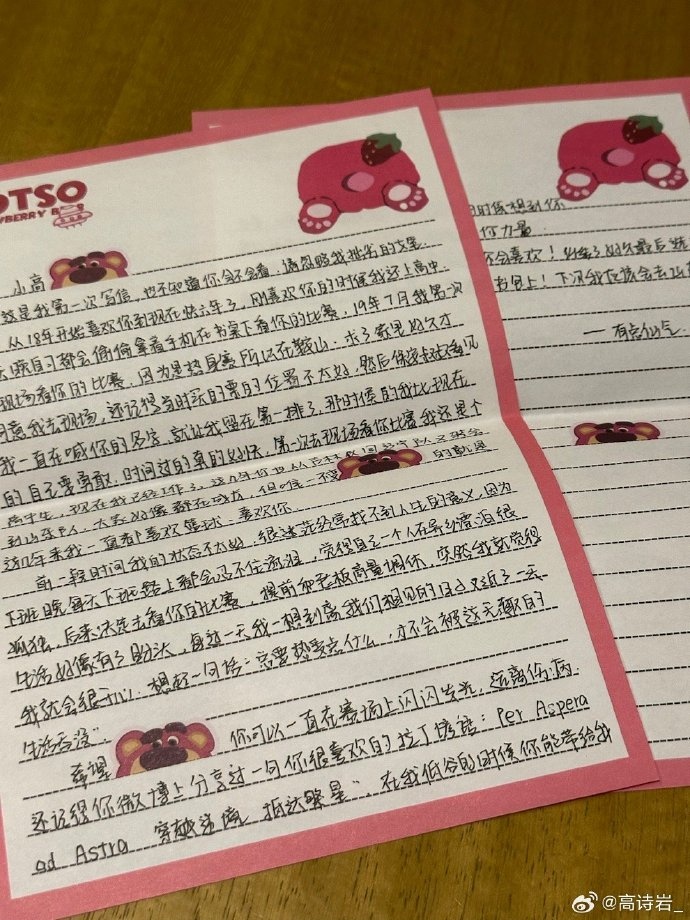 OTSO
小高
这是我第一次写信,也不知道你会不会看,请忽略我拙劣的文笔
从18年开始喜欢你到现在快六年了,刚喜欢你的时候我还上高中
天晚自习都会偷偷拿着手机在书桌下看你的比赛,19年7月我第一次
现场看你的比赛,因为是热身赛所以在鞍山,求了家里好久才
同意我去现场,还记得当时买的票的位置不太好,然后保安叔叔看见
我一直在喊你的名字,就让我留在第一排了,那时候的我比现在
的自己要勇敢,时间过的真的好快,第一次去现场看你比赛我还是个
高中生,现在我已经工作了,这几年你也从吉林
到山东队,大家好像都在成长,但唯一不变 的就是
这几年来我一直都喜欢篮球,喜欢你
前一段时间我的状态不太好,很迷茫经常找不到人生的意义,因为
下班晚每天下班路上都会忍不住流泪,觉得自己一个人在异乡漂泊很
孤独,后来决定去看你的比赛,提前和老板商量调休,突然我就觉得
生活好像有了盼头,每过一天我一想到离我们相见的日子又近了一天
我就会很开心,想起一句话:总要热爱点什么,才不会被这无趣的
生活吞没”
希望 你可以一直在赛场上闪闪发光,远离伤病
还记得你微博上分享过一句你很喜欢的拉丁谚语:Per Aspera
ad Astra 穿越逆境,抵达繁星”,在我低谷的时候你能带给我
的时候想到你
力量
不会喜欢!
书包上!下次我应该会去
@高诗岩_